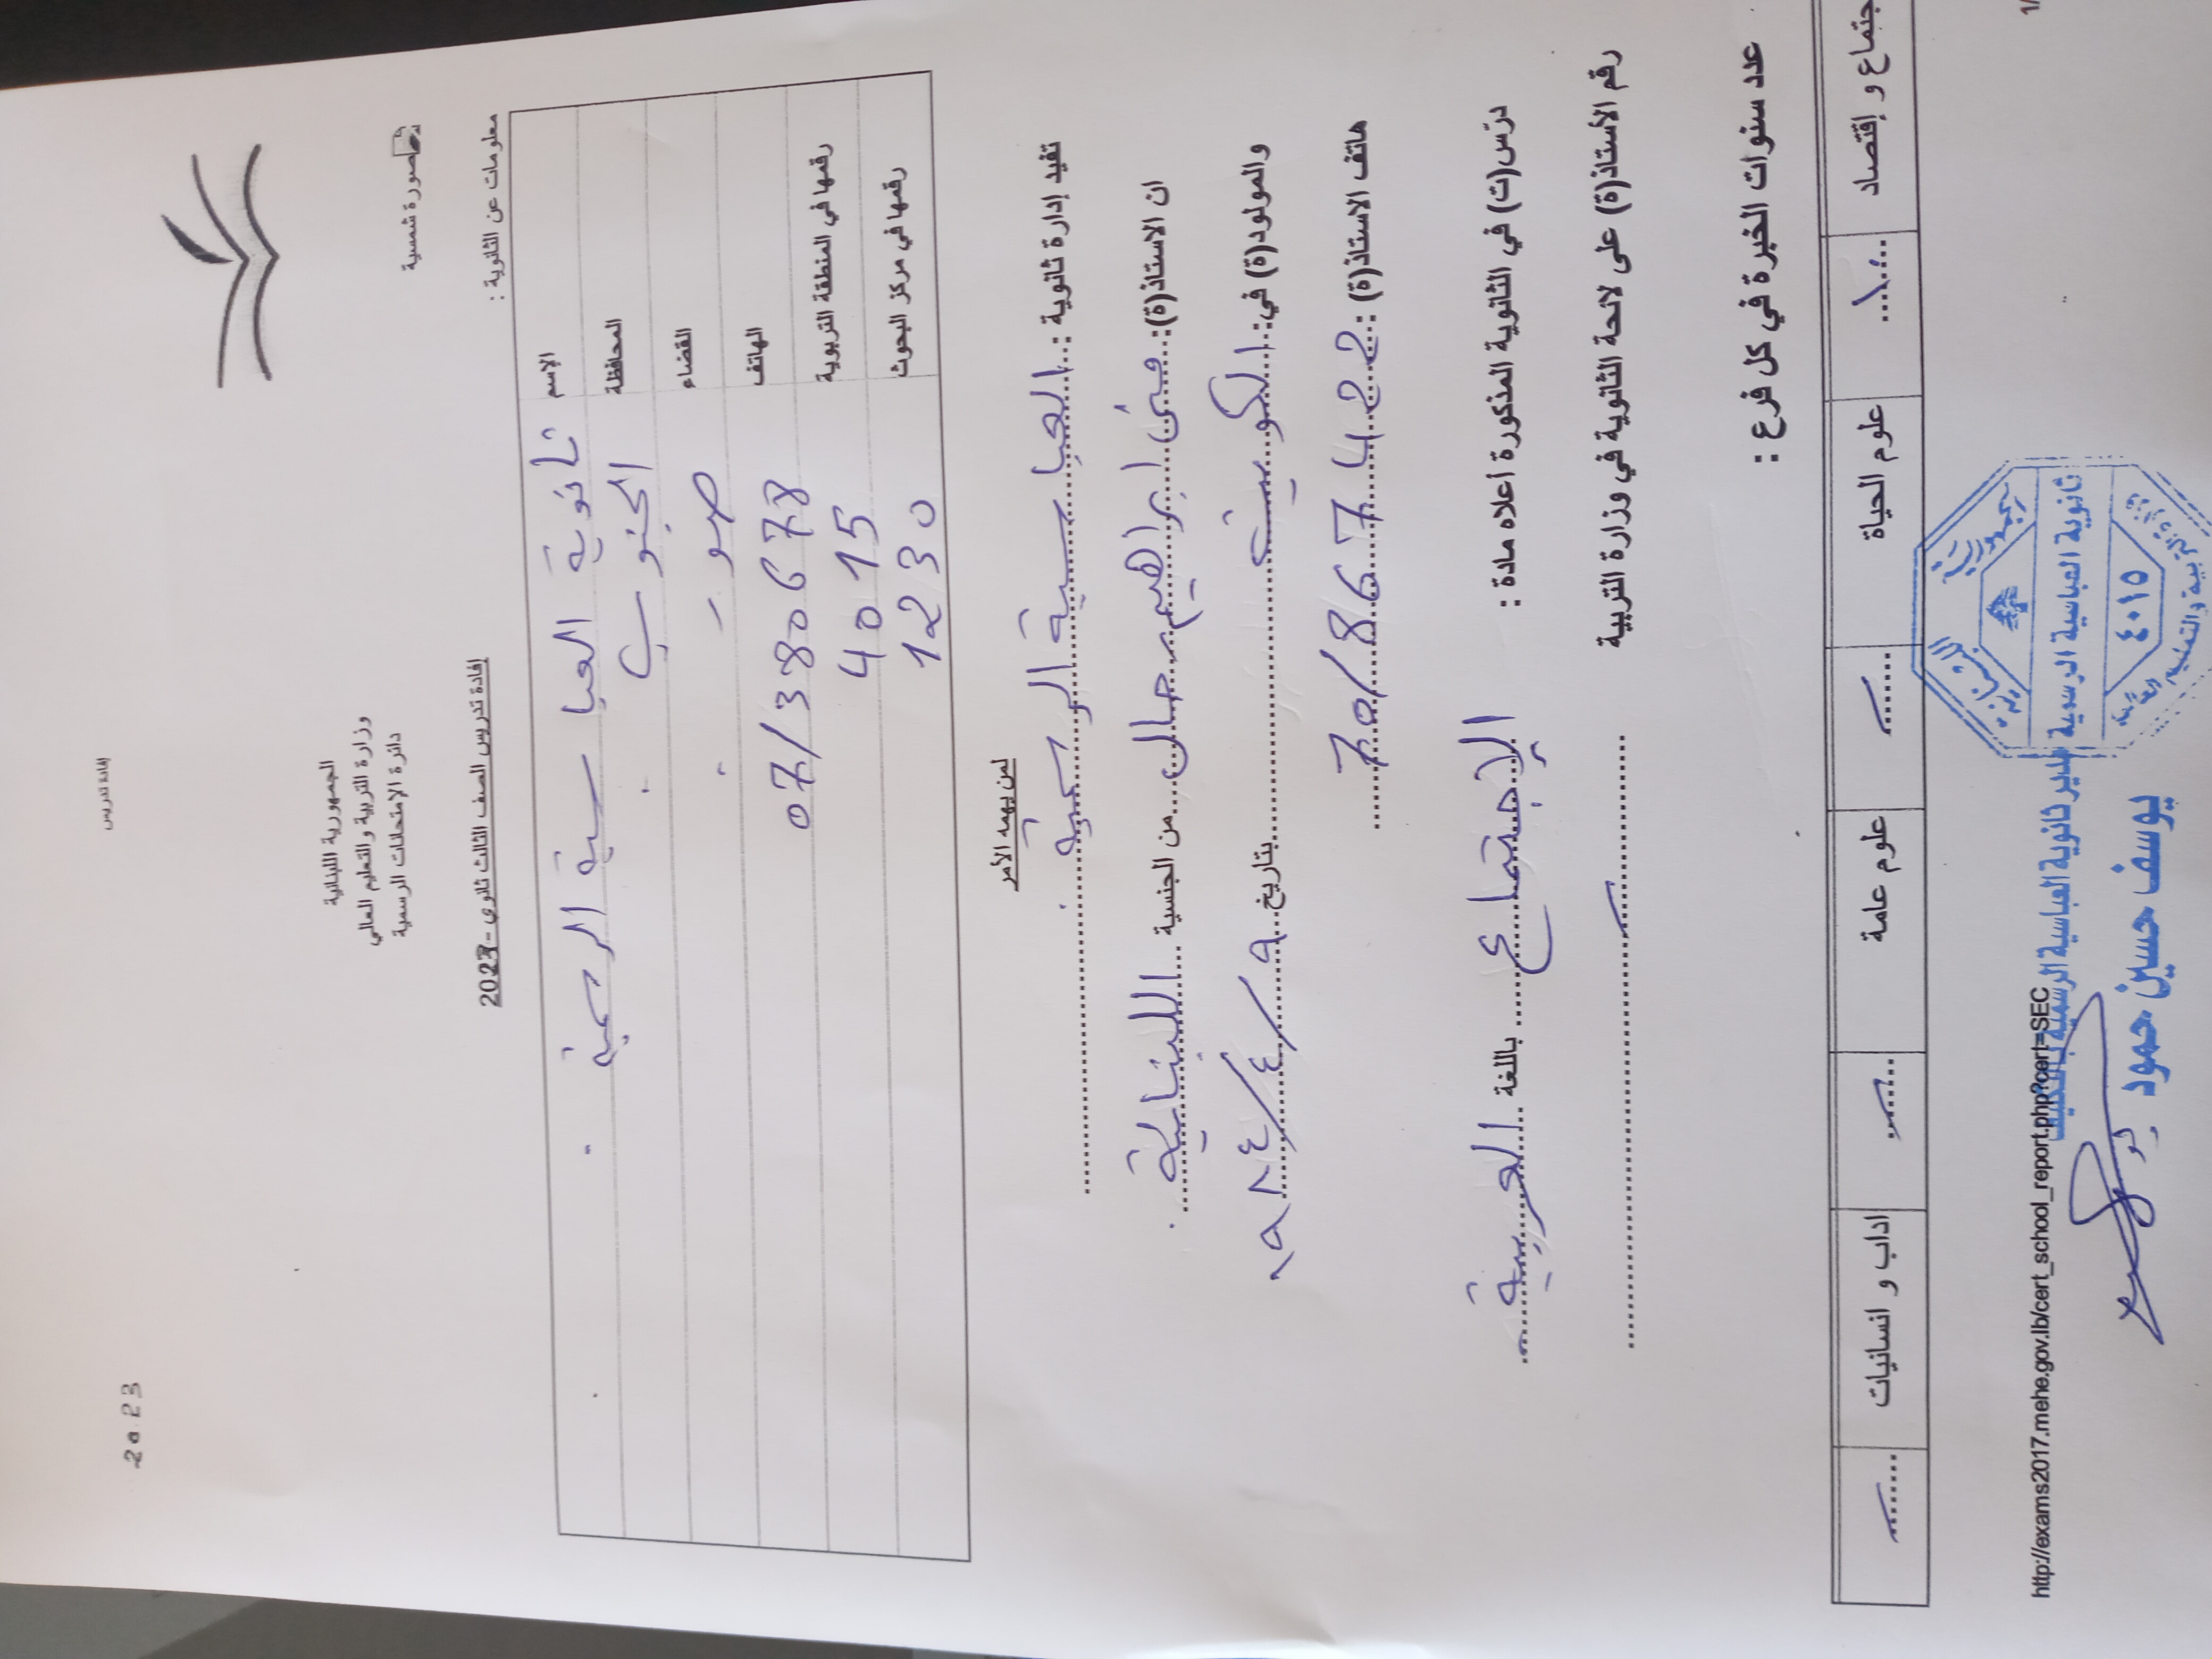 2023
إفادة تدريس
الجمهورية اللبنانية
وزارة التربية و التعليم العالي
دائرة الإمتحانات الرسمية
صورة شمسية
إفادة تدريس الصف الثالث ثانوي - 2023
معلومات عن الثانوية :
الإسم ثانوية العباسية الرسمية
المحافظة الجنوب
القضاء صور
الهاتف 07/380678
رقمها في المنطقة التربوية 4015
رقمها في مركز البحوث 1230
لمن يهمه الأمر
تفيد إدارة ثانوية : العباسية الرسمية
ان الاستاذ(ة): منى ابراهيم من الجنسية اللبنانية
والمولود(ة) في: الكويت بتاريخ ٩/٤/١٩٨٤
هاتف الاستاذ(ة) : 70/867422
درّس(ت) في الثانوية المذكورة أعلاه مادة : الإجتماع باللغة العربية
رقم الأستاذ(ة) على لائحة الثانوية في وزارة التربية
عدد سنوات الخبرة في كل فرع :
جتماع و إقتصاد علوم الحياة علوم عامة اداب و انسانيات
http://exams2017.mehe.gov.lb/cert_school_report.php?cert=SEC 1/
ثانوية العباسية الرسمية
٤٠١٥
مدير ثانوية العباسية الرسمية بالتكليف
يوسف حسين حمود